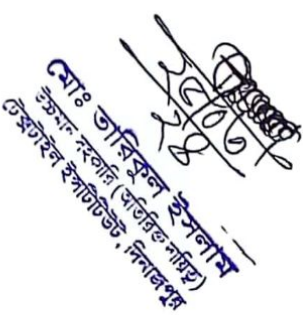 মোঃ তারিকুল ইসলাম
উচ্চমান সহকারি (অতিরিক্ত দায়িত্ব)
টেক্সটাইল ইন্সটিটিউট, দিনাজপুর